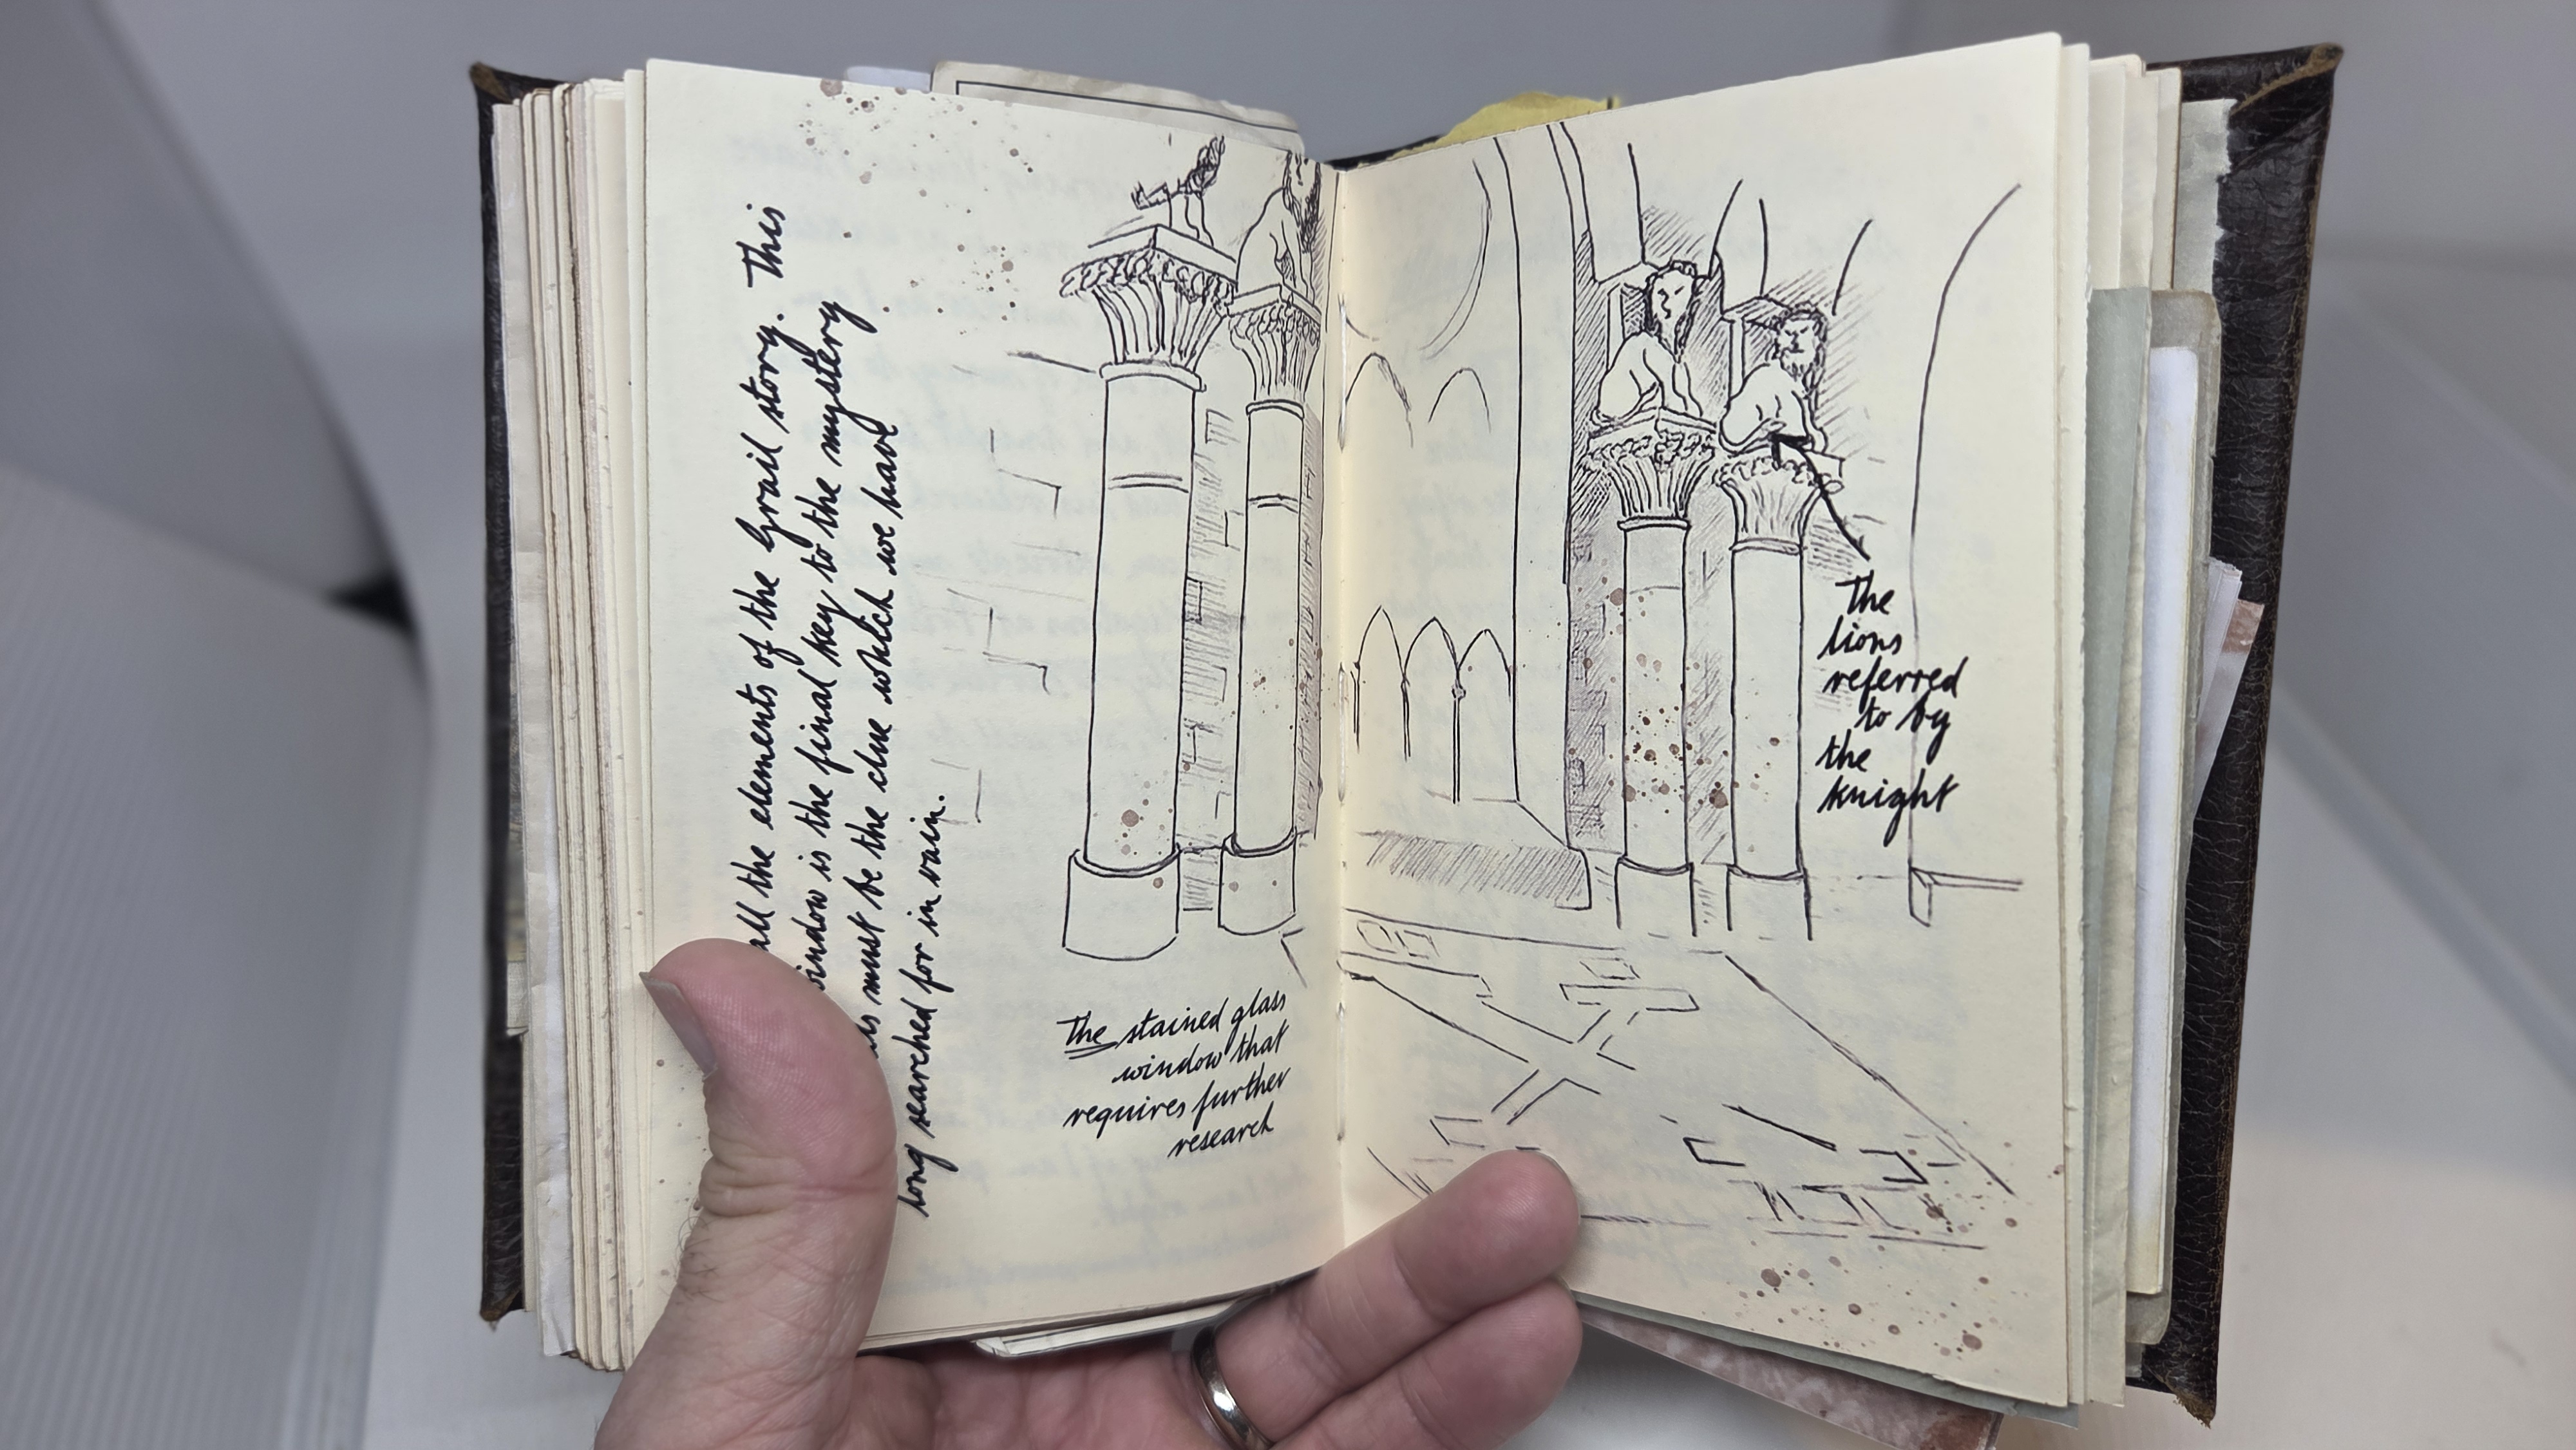 all the elements of the Grail story. This
window is the final key to the mystery
must be the clue which we have
long searched for in vain.
The stained glass
window that
requires further
research
The
lions
referred
to by
the
knight